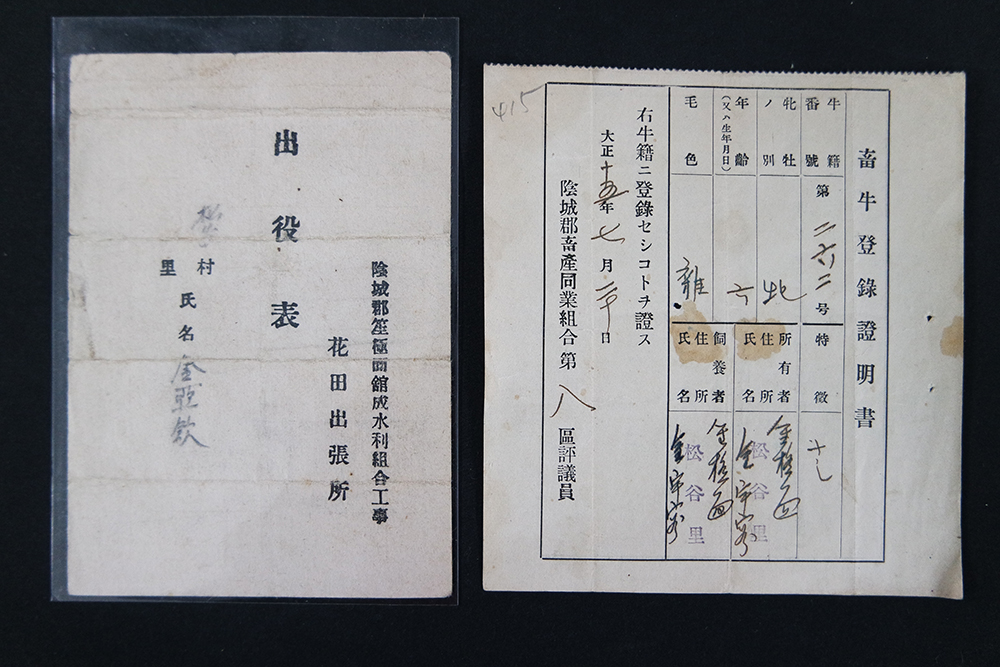 陰城郡笙極面館成水利組合工事
花田出張所
出役表
村
里
氏名 金亞欽
畜牛登錄證明書
牛籍番號 第二六二号
特徵 ナシ
牝牡ノ別 牝
年齡(又ハ生年月日) 六
毛色
所有者 住所 笙極面 松谷里
氏名 金
飼養者 住所 笙極面 松谷里
氏名 金
右牛籍ニ登錄セシコトヲ證ス
大正十五年七月二十日
陰城郡畜產同業組合第八區評議員
415